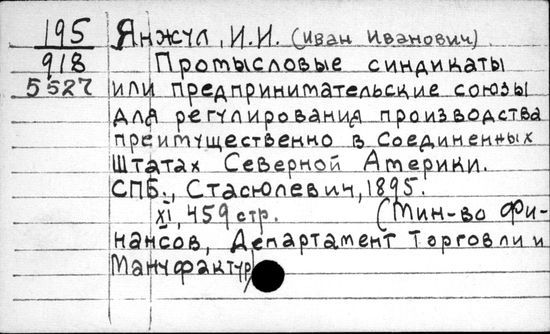 195 Янжул, И.И. (Иван Иванович).
918 Промысловые синдикаты
5527 или предпринимательские союзы
для регулирования производства
преимущественно в Соединенных
Штатах Северной Америки.
СПБ., Стасюлевич, 1895.
XI, 459 стр. (Мин-во Фи-
нансов, Департамент Торговли и
Мануфактур)